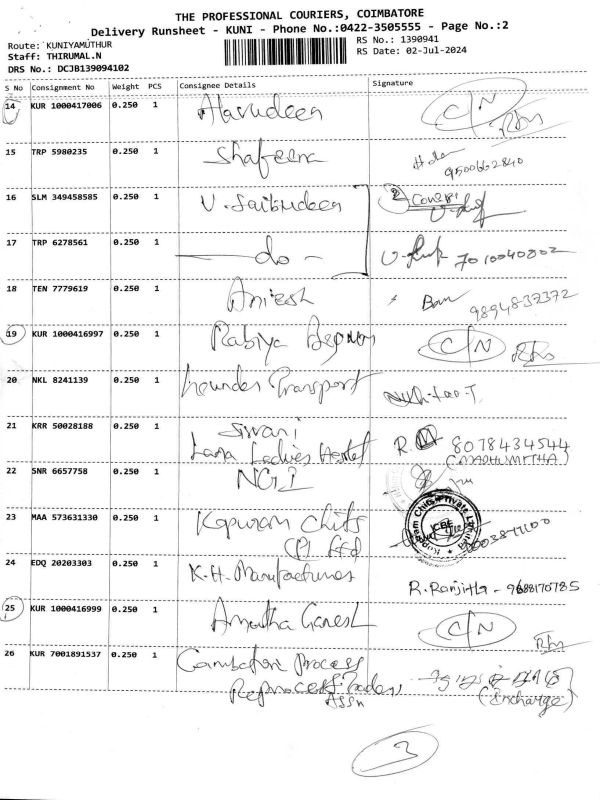 THE PROFESSIONAL COURIERS, COIMBATORE
Delivery Runsheet - KUNI - Phone No.:0422-3505555 - Page No.:2
Route: KUNIYAMUTHUR
RS No.: 1390941
Staff: THIRUMAL.N
RS Date: 02-Jul-2024
DRS No.: DCJB139094102
S No Consignment No Weight PCS Consignee Details Signature
14 KUR 1000417006 0.250 1 Alavudeen C/N
15 TRP 5980235 0.250 1 Shafeena
9500662840
16 SLM 349458585 0.250 1 U. Saibudeen 2 Cover
17 TRP 6278561 0.250 1 - do - 7010040802
18 TEN 7779619 0.250 1 Aniesh 98948-37372
19 KUR 1000416997 0.250 1 Rabiya Begum C/N
20 NKL 8241139 0.250 1 Transport
21 KRR 50028188 0.250 1 Siwani R. 8078434544
Lama Ladies Hostel (MADHUMITHA)
22 SNR 6657758 0.250 1
23 MAA 573631330 0.250 1 Kapuram Chits
(P) Ltd
24 EDQ 20203303 0.250 1 K.H. Manufactures R. Ranjitha - 9688170785
25 KUR 1000416999 0.250 1 Amutha Ganesh C/N
26 KUR 7001891537 0.250 1 Coimbatore Process
Reprocess Traders (Incharge)
Assn
3